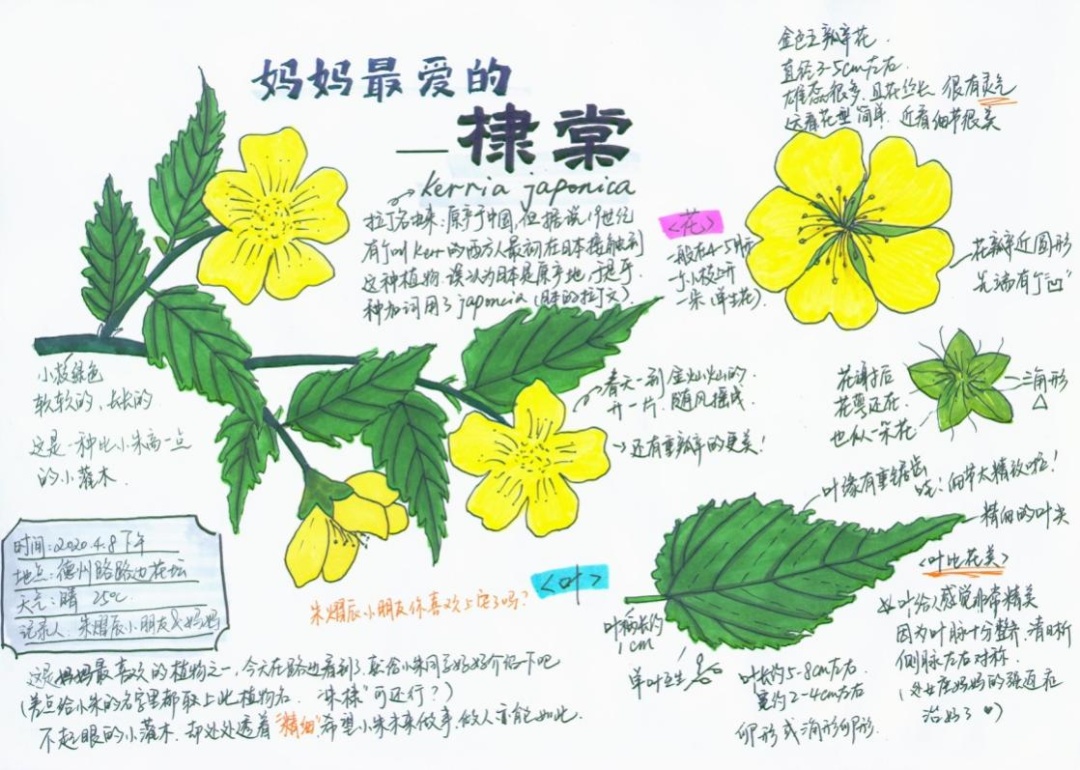 妈妈最爱的
—棣棠
Kerria japonica
拉丁名由来：原产于中国，但据说19世纪
有个叫Kerr的西方人最初在日本接触到
这种植物，误认为日本是原产地，于是乎
种加词用了japoncia（日本的拉丁文）.
金色五瓣花.
直径3-5cm左右.
雄蕊很多，且花丝长，很有灵气
远看花型简单，近看细节很美
<花>
一般在4-5月开
一小枝上开
一朵（单生花）.
花瓣近圆形
先端有个"凹"
小枝绿色
软软的、长长的
这是一种比小朱高一点
的小灌木.
春天一到金灿灿的
开一片，随风摇曳.
还有重瓣的更美！
花谢后
花萼还在.
也似一朵花
三角形
△
叶缘有重锯齿
哇：细节太精致啦！
精细的叶尖
<叶比花美>
叶给人感觉非常精美
因为叶脉十分整齐、清晰
侧脉左右对称.
（处女座妈妈的强迫症
治好了♥）
时间：2020.4.8下午
地点：德州路路边花坛
天气：晴 25℃
记录人：朱熠辰小朋友&妈妈
朱熠辰小朋友你喜欢上它了吗？
<叶>
叶柄长约
1cm
单叶互生
叶长约5-8cm左右
宽约2-4cm左右
卵形或三角形卵形.
这是妈妈最喜欢的植物之一，今天在路边看到了，要给小朱同学好好介绍下吧
（差点给小朱的名字里都取上此植物名.“朱棣”可还行？）
不起眼的小灌木，却处处透着“精细”希望小朱未来做事、做人亦能如此.